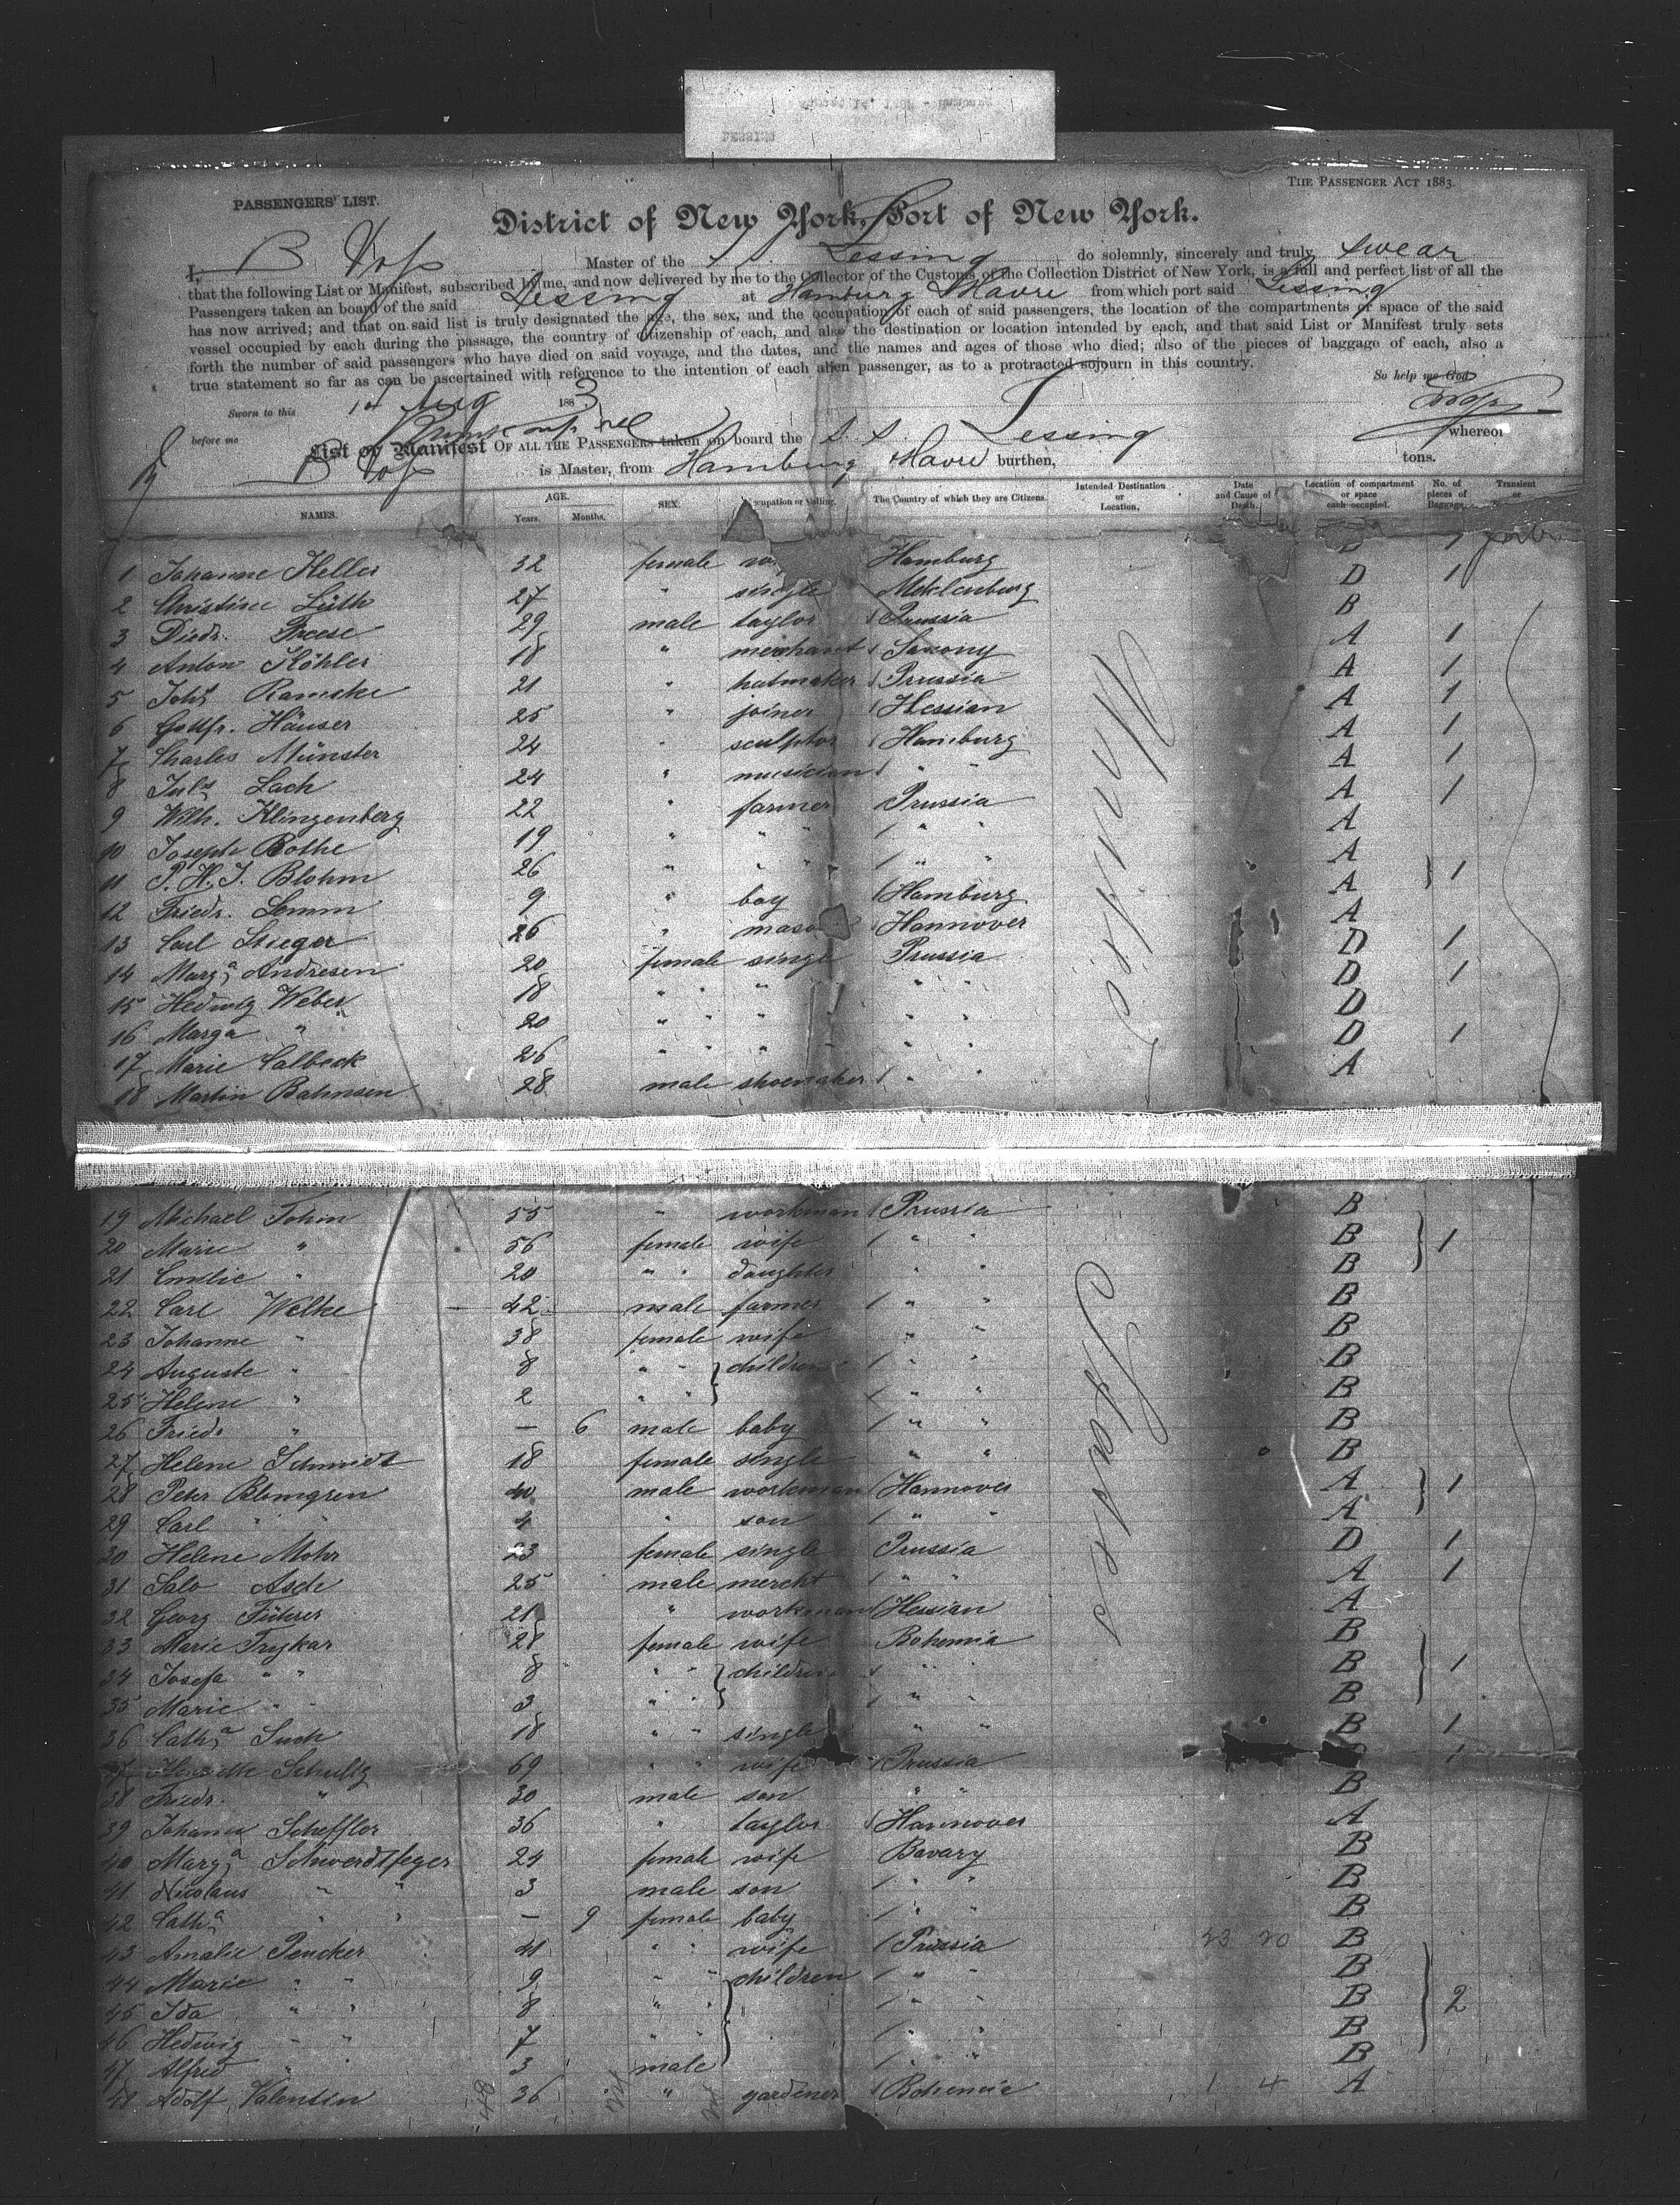 LESSING
THE PASSENGER ACT 1883.
PASSENGERS' LIST.
District of New York, Port of New York.
I, B Voss Master of the S. S. Lessing do solemnly, sincerely and truly swear
that the following List or Manifest, subscribed by me, and now delivered by me to the Collector of the Customs of the Collection District of New York, is a full and perfect list of all the
Passengers taken an board of the said Lessing at Hamburg Havre from which port said Lessing
has now arrived; and that on said list is truly designated the age, the sex, and the occupation of each of said passengers, the location of the compartments or space of the said
vessel occupied by each during the passage, the country of citizenship of each, and also the destination or location intended by each, and that said List or Manifest truly sets
forth the number of said passengers who have died on said voyage, and the dates, and the names and ages of those who died; also of the pieces of baggage of each, also a
true statement so far as can be ascertained with reference to the intention of each alien passenger, as to a protracted sojourn in this country.
So help me God
Sworn to this 14 Aug 1883 Voss
before me
List or Manifest OF ALL THE PASSENGERS taken on board the S. S. Lessing whereof
B Voss is Master, from Hamburg Havre burthen, tons.
NAMES. AGE. Years. Months. SEX. Occupation or Calling. The Country of which they are Citizens. Intended Destination or Location. Date and Cause of Death. Location of compartment or space each occupied. No. of pieces of Baggage. Transient or
1 Johanne Heller 32 female Hamburg 1
2 Christine Lüth 27 " single Meklenburg D 1
3 Diedr. Freese 29 male taylor Prussia B
4 Anton Köhler 18 " merchant Saxony A 1
5 Johs Ramske 21 " hatmaker Prussia A 1
6 Gottfr. Häuser 25 " joiner Hessian A 1
7 Charles Münster 24 " sculptor Hamburg A 1
8 Juls Lach 24 " musician " A 1
9 Wilh. Klingenberg 22 " farmer Prussia A 1
10 Joseph Bothe 19 " " " " " A
11 P. H. J. Blohm 26 " " " " " A
12 Friedr. Lemm 9 " boy Hamburg A 1
13 Carl Stieger 26 " mason Hannover A
14 Marga Andresen 20 female single Prussia D 1
15 Hedwig Weber 18 " " " " " D 1
16 Marga " 20 " " " " " D
17 Marie Calbeck 26 " " " " " D 1
18 Martin Bahnsen 28 male shoemaker " A
19 Michael Tohm 55 " workman Prussia B
20 Marie " 56 female wife " " B 1
21 Emilie " 20 " " daughter " " B
22 Carl Welke 42 male farmer " " B
23 Johanne " 38 female wife " " B
24 Auguste " 8 " " children " " B
25 Helene " 2 " " " " B
26 Friedr " — 6 male baby " " B
27 Helene Schmidt 18 female single " " B
28 Peter Blomgren 40 male workman Hannover A 1
29 Carl " " 4 " son " " A
30 Helene Mohr 23 female single Prussia D 1
31 Salo Asch 25 male mercht " " A 1
32 Georg Führer 21 " workman Hessian A
33 Marie Trykar 28 female wife Bohemia B
34 Josefa " " 8 " " children " " B 1
35 Marie " " 3 " " " " B
36 Catha Such 18 " " single " " B 1
37 Schultz 69 " " wife Prussia 1
38 Friedr. " 30 male son " " B
39 Johann Scheffler 36 " taylor Hannover A
40 Marga Schwerdtfeger 24 female wife Bavary B
41 Nicolaus " " 3 male son " " B
42 Catha " " — 9 female baby " " B
43 Amalie Pencker 41 " " wife Prussia 23 20 B
44 Marie " " 9 " " children " " B
45 Ida " " 8 " " " " B 2
46 Hedwig " " 7 " " " " B
47 Alfred " " 3 male " " B
48 Adolf Valentin 36 " gardener Bohemia 1 4 A